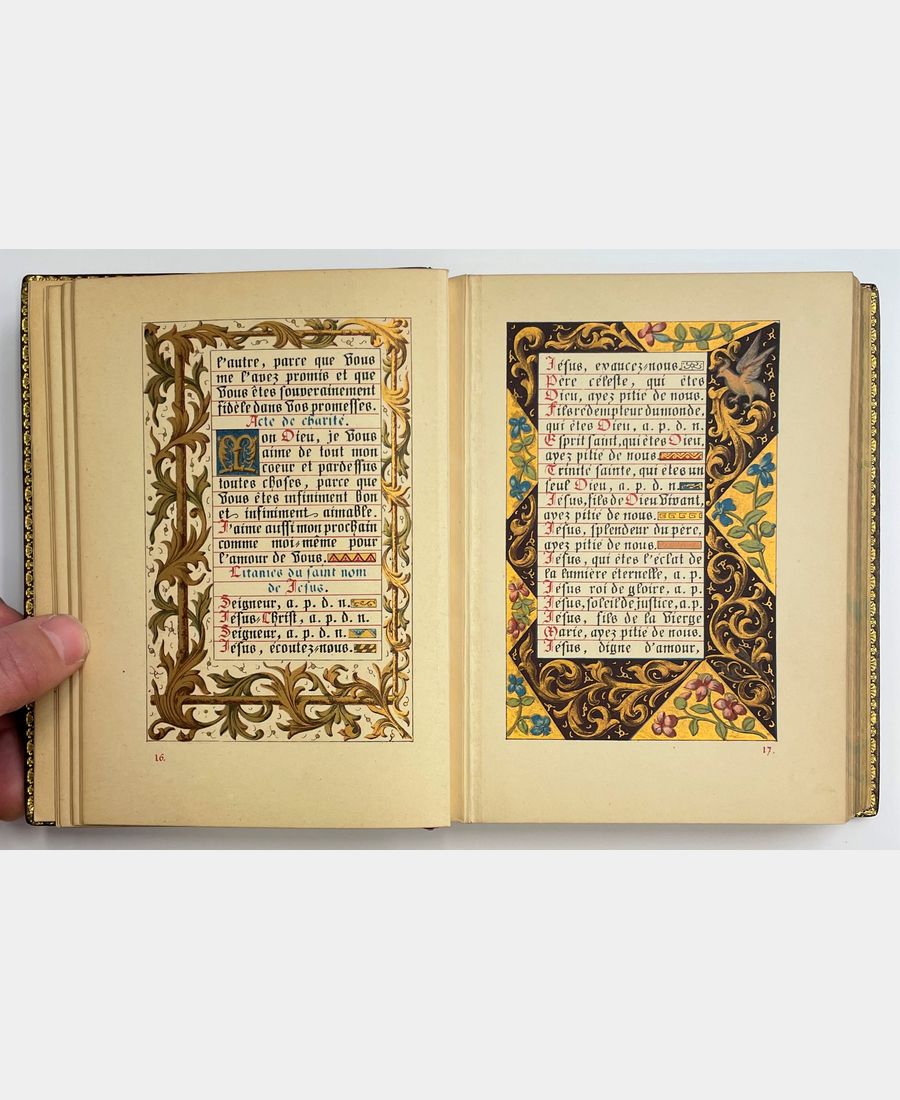 l'autre, parce que Vous
me l'avez promis et que
Vous êtes souverainement
fidèle dans Vos promesses.
Acte de charité.
Mon Dieu, je Vous
aime de tout mon
coeur et pardessus
toutes choses, parce que
Vous êtes infiniment bon
et infiniment aimable.
J'aime aussi mon prochain
comme moi-même pour
l'amour de Vous.
Litanies du saint nom
de Jésus.
Seigneur, a. p. d. n.
Jésus-Christ, a. p. d. n.
Seigneur, a. p. d. n.
Jésus, écoutez-nous.
16.
Jésus, exaucez-nous.
Père céleste, qui êtes
Dieu, ayez pitié de nous.
Fils rédempteur du monde,
qui êtes Dieu, a. p. d. n.
Esprit saint, qui êtes Dieu,
ayez pitié de nous.
Trinité sainte, qui êtes un
seul Dieu, a. p. d. n.
Jésus, fils de Dieu Vivant,
ayez pitié de nous.
Jésus, splendeur du père,
ayez pitié de nous.
Jésus, qui êtes l'éclat de
la lumière éternelle, a. p.
Jésus roi de gloire, a. p.
Jésus, soleil de justice, a. p.
Jésus, fils de la Vierge
Marie, ayez pitié de nous.
Jésus, digne d'amour,
17.